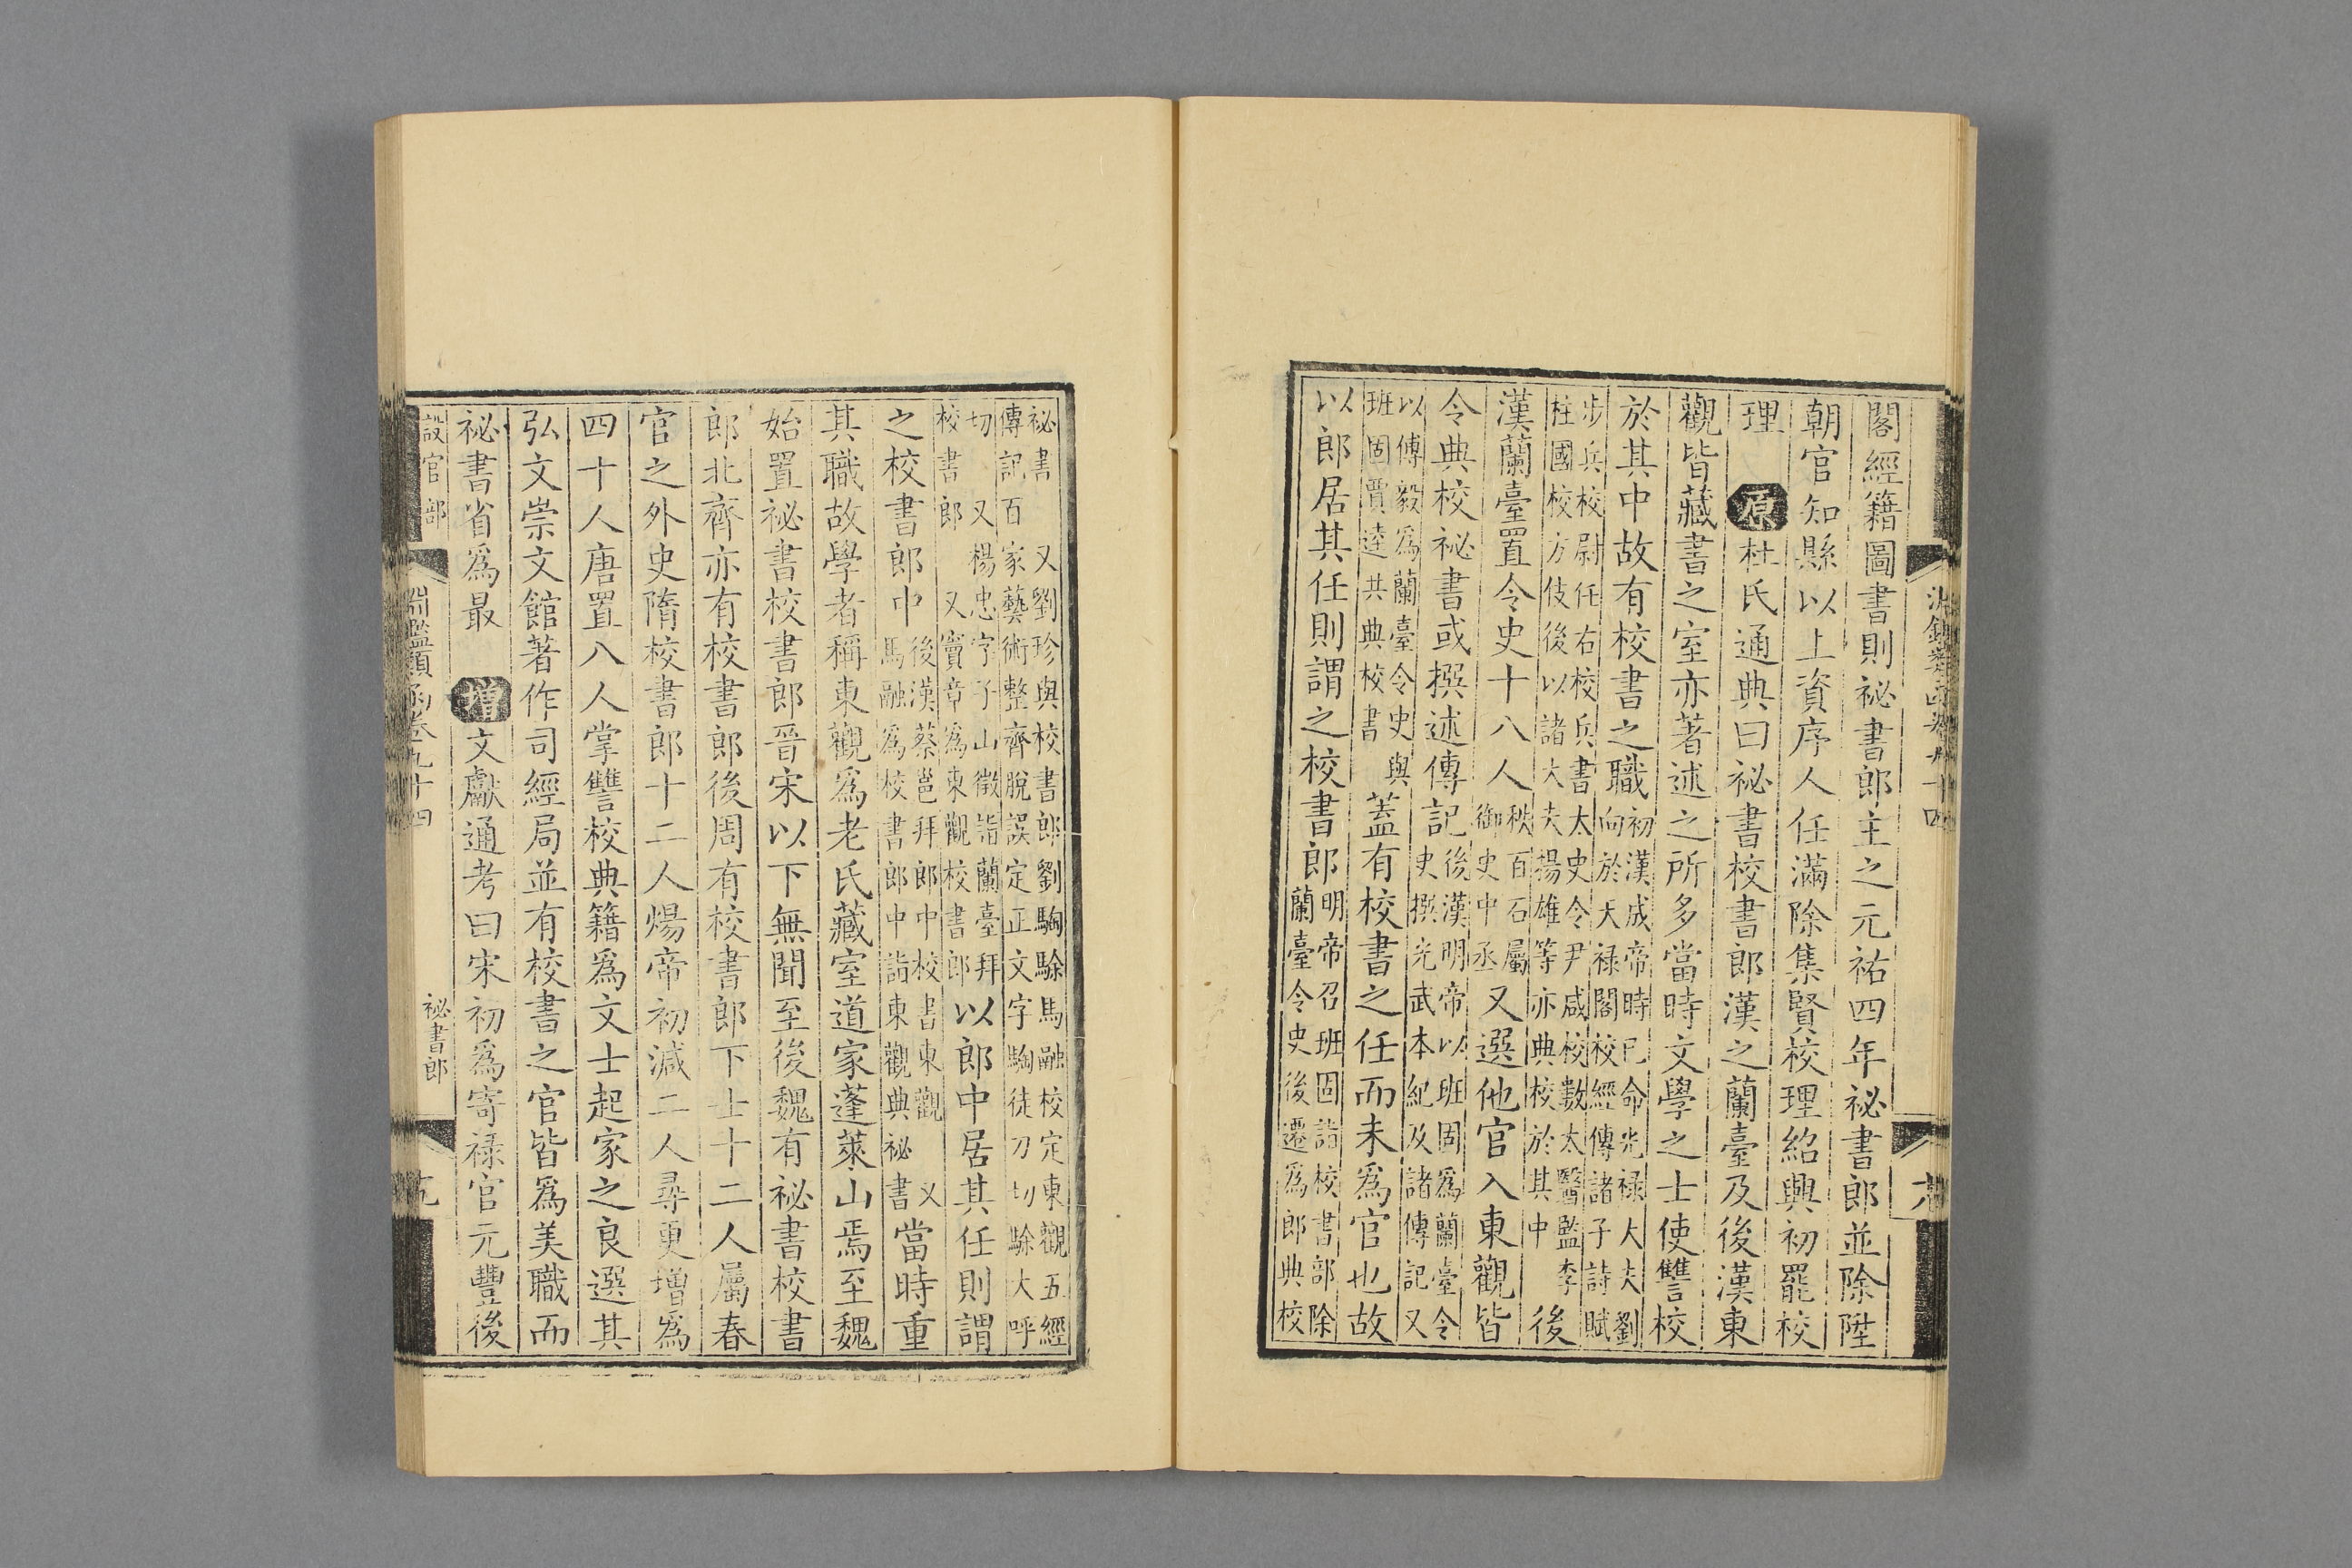 閣經籍圖書則祕書郎主之元祐四年祕書郎並除陞
朝官知縣以上資序人任滿除集賢校理紹興初罷校
理 原杜氏通典曰祕書校書郎漢之蘭臺及後漢東
觀皆藏書之室亦著述之所多當時文學之士使讐校
於其中故有校書之職初漢成帝時已命光禄大夫劉向於天禄閣校經傳諸子詩賦
步兵校尉任右校兵書太史令尹咸校數太醫監李柱國校方伎後以諸大夫揚雄等亦典校於其中後
漢蘭臺置令史十八人秩百石屬御史中丞又選他官入東觀皆
令典校祕書或撰述傳記後漢明帝以班固爲蘭臺令史撰光武本紀及諸傳記又
以傅毅爲蘭臺令史與班固賈逵共典校書蓋有校書之任而未爲官也故
以郎居其任則謂之校書郎明帝召班固詣校書部除蘭臺令史後遷爲郎典校
祕書 又劉珍與校書郎劉騊駼馬融校定東觀五經傳記百家藝術整齊脫誤定正文字騊徒刀切駼大呼
切 又楊忠字子山徵詣蘭臺拜校書郎 又竇章爲東觀校書郎以郎中居其任則謂
之校書郎中後漢蔡邕拜郎中校書東觀 又馬融爲校書郎中詣東觀典祕書當時重
其職故學者稱東觀爲老氏藏室道家蓬萊山焉至魏
始置祕書校書郎晉宋以下無聞至後魏有祕書校書
郎北齊亦有校書郎後周有校書郎下士十二人屬春
官之外史隋校書郎十二人煬帝初減二人尋更增爲
四十人唐置八人掌讐校典籍爲文士起家之良選其
弘文崇文館著作司經局並有校書之官皆爲美職而
祕書省爲最 增文獻通考曰宋初爲寄禄官元豐後
設官部 淵鑑類函卷九十四 祕書郎